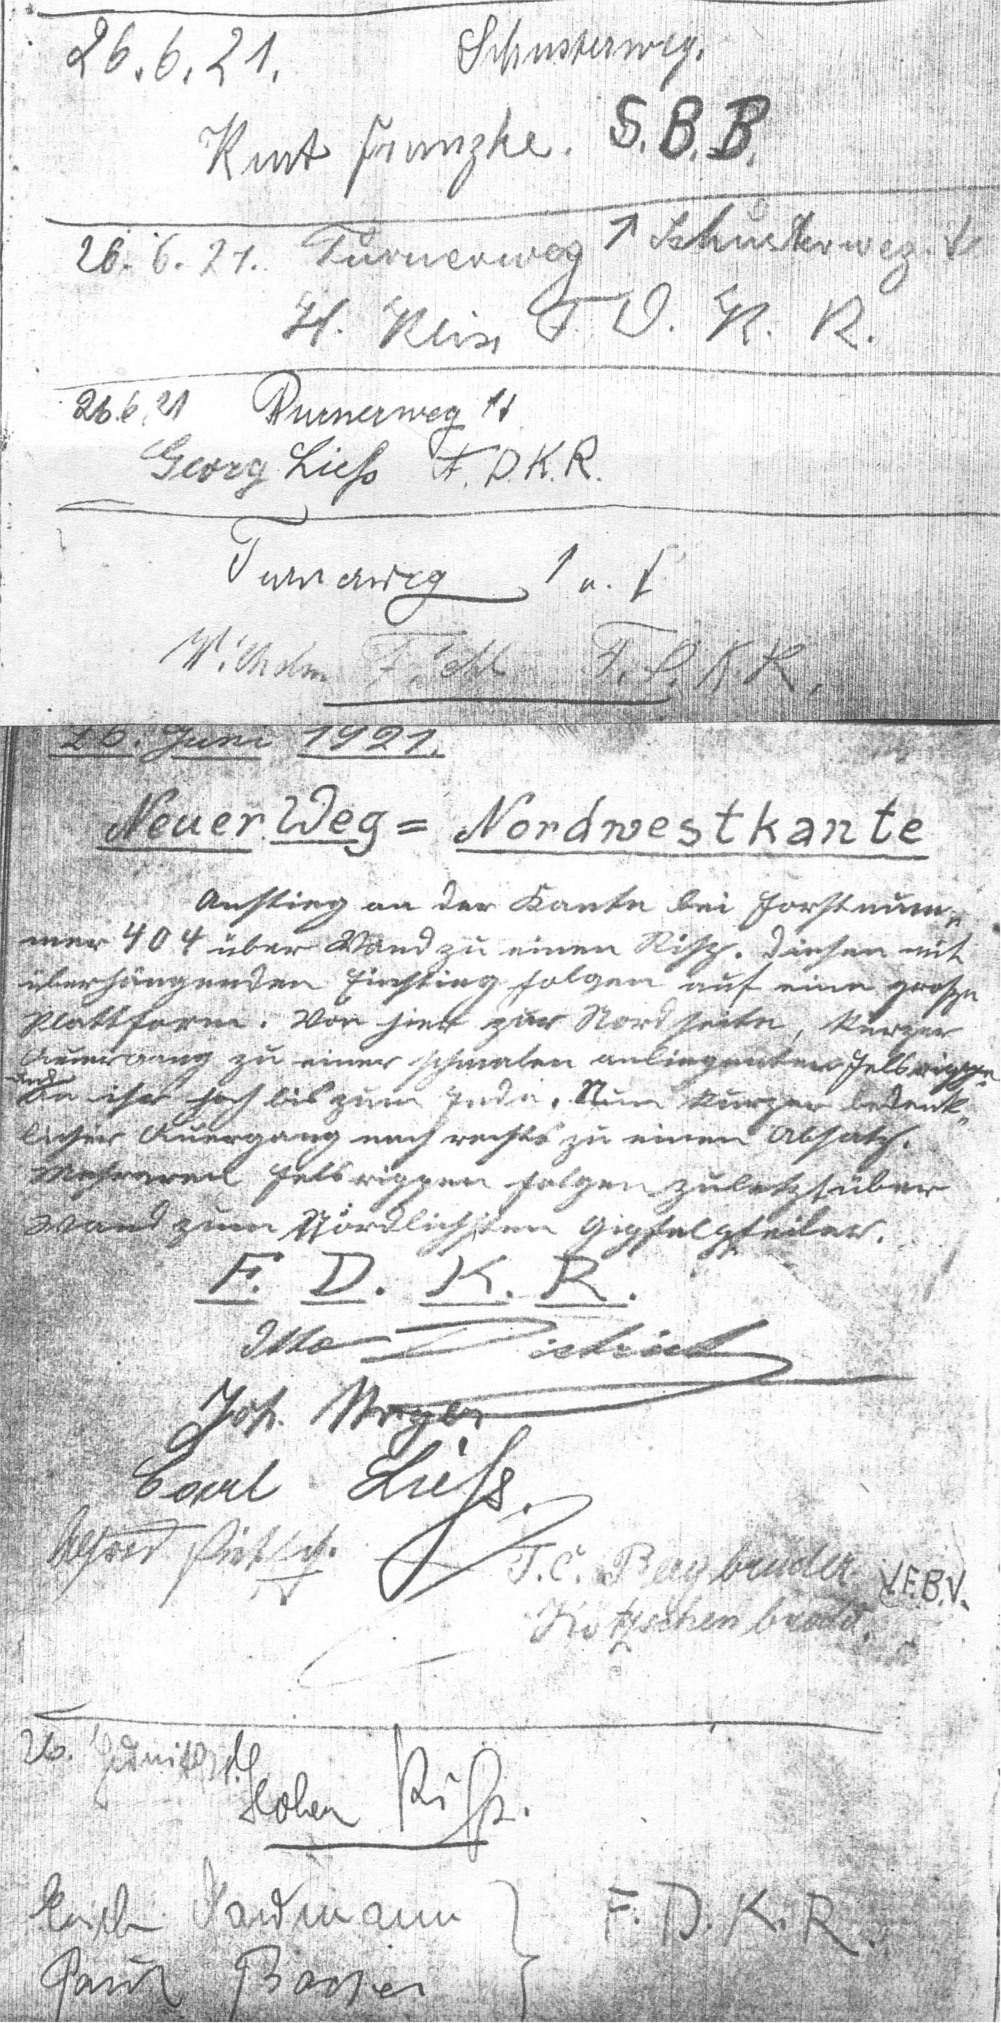 26. 6. 21. Schusterweg.
Kurt Franzke. S.B.B.
26. 6. 21. Turnerweg ↑ Schusterweg ↓
H. Kliss F. D. K. R.
26.6.21 Turnerweg ↑↓
Georg Ließ F. D. K. R.
Turnerweg ↑ u. ↓
Wilhelm F. D. K. R.
26. Juni 1921.
Neuer Weg = Nordwestkante
Anstieg an der Kante bei Forstnum-
mer 404 über Wand zu einen Riß. Diesen mit
überhängenden Einstieg folgen auf eine große
Plattform. Von hier zur Nordseite, kurzer
Quergang zu einer schmalen anliegenden Felsrippe
und
an ihr hoch bis zum Ende. Nun kurzer bedenk-
licher Quergang nach rechts zu einen Absatz.
Mehreren Felsrippen folgen zuletzt über
Wand zum Nördlichsten Gipfelpfeiler.
F. D. K. R.
Otto Dietrich
Joh. Meyer
Carl Ließ.
Alfred Pietsch.
T.C. Bergbrüder V.F.B.V.
Kötzschenbroda.
26. Juni
Hoher Riß.
Erich Hardtmann F. D. K. R.
Paul